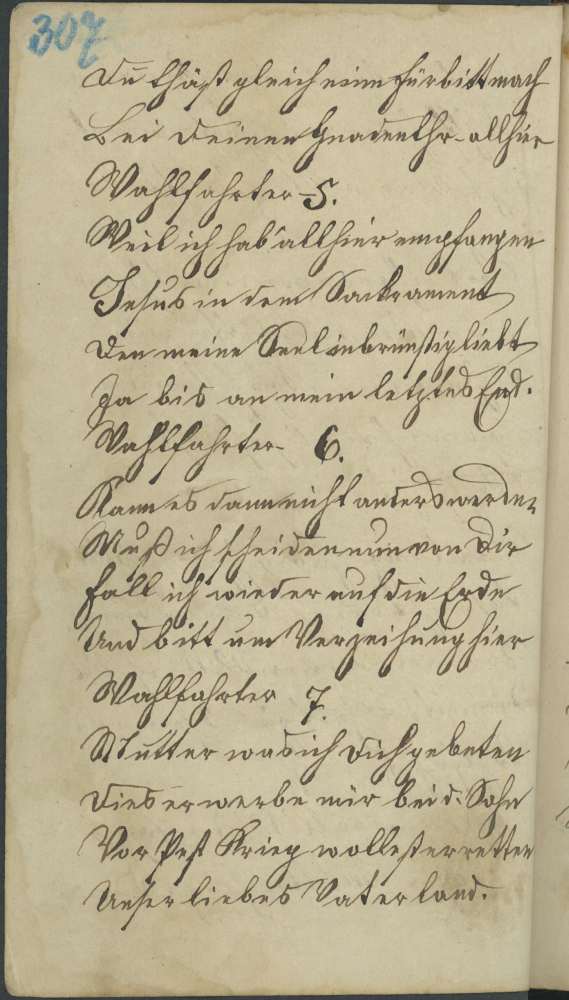 307
Du thäst gleich eine fürbitt mach
Bei Deinen Gnadenthr. allhier
Wahlfahrter 5.
Weil ich hab allhier empfangen
Jesus in dem Sackrament
Den meine Seel inbrünstig liebt
Ja bis an mein letztes End.
Wahlfahrter 6.
Kann es dann nicht anders werden
Muß ich scheiden nun von Dir
Fall ich wieder auf die Erde
Und bitt um Verzeihung hier
Wahlfahrter 7.
Mutter was ich Dich gebeten
Dies erwerbe mir bei d. Sohn
Vor Pest Krieg wollest erretten
Unser liebes Vaterland.